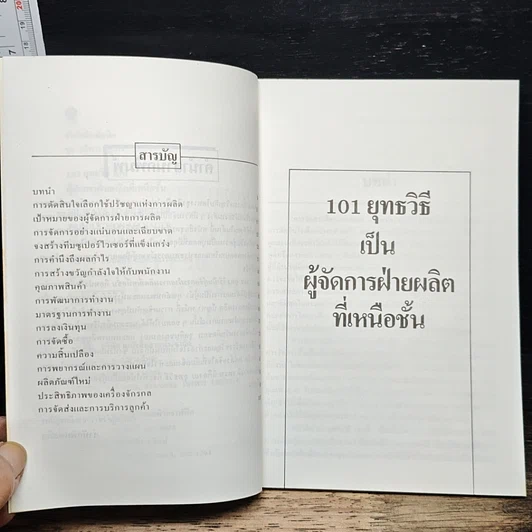 สารบัญ
บทนำ
การตัดสินใจเลือกใช้ปรัชญาแห่งการผลิต
เป้าหมายของผู้จัดการฝ่ายการผลิต
การจัดการอย่างแน่นอนและเฉียบขาด
จงสร้างทีมซูเปอร์ไวเซอร์ที่แข็งแกร่ง
การคำนึงถึงผลกำไร
การสร้างขวัญกำลังใจให้กับพนักงาน
คุณภาพสินค้า
การพัฒนาการทำงาน
มาตรฐานการทำงาน
การลงเงินทุน
การจัดซื้อ
ความสิ้นเปลือง
การพยากรณ์และการวางแผน
ผลิตภัณฑ์ใหม่
ประสิทธิภาพของเครื่องจักรกล
การจัดส่งและการบริการลูกค้า
101 ยุทธวิธี
เป็น
ผู้จัดการฝ่ายผลิต
ที่เหนือชั้น